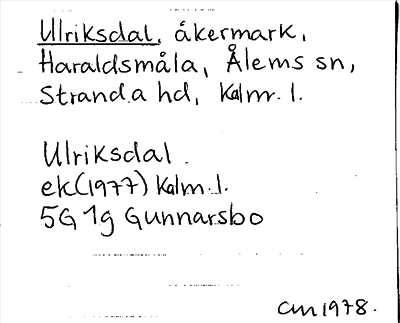 Ulriksdal, åkermark,
Haraldsmåla, Ålems sn,
Stranda hd, Kalmr. l.
Ulriksdal.
ek(1977) Kalm.l.
5G 1g Gunnarsbo
CM 1978.